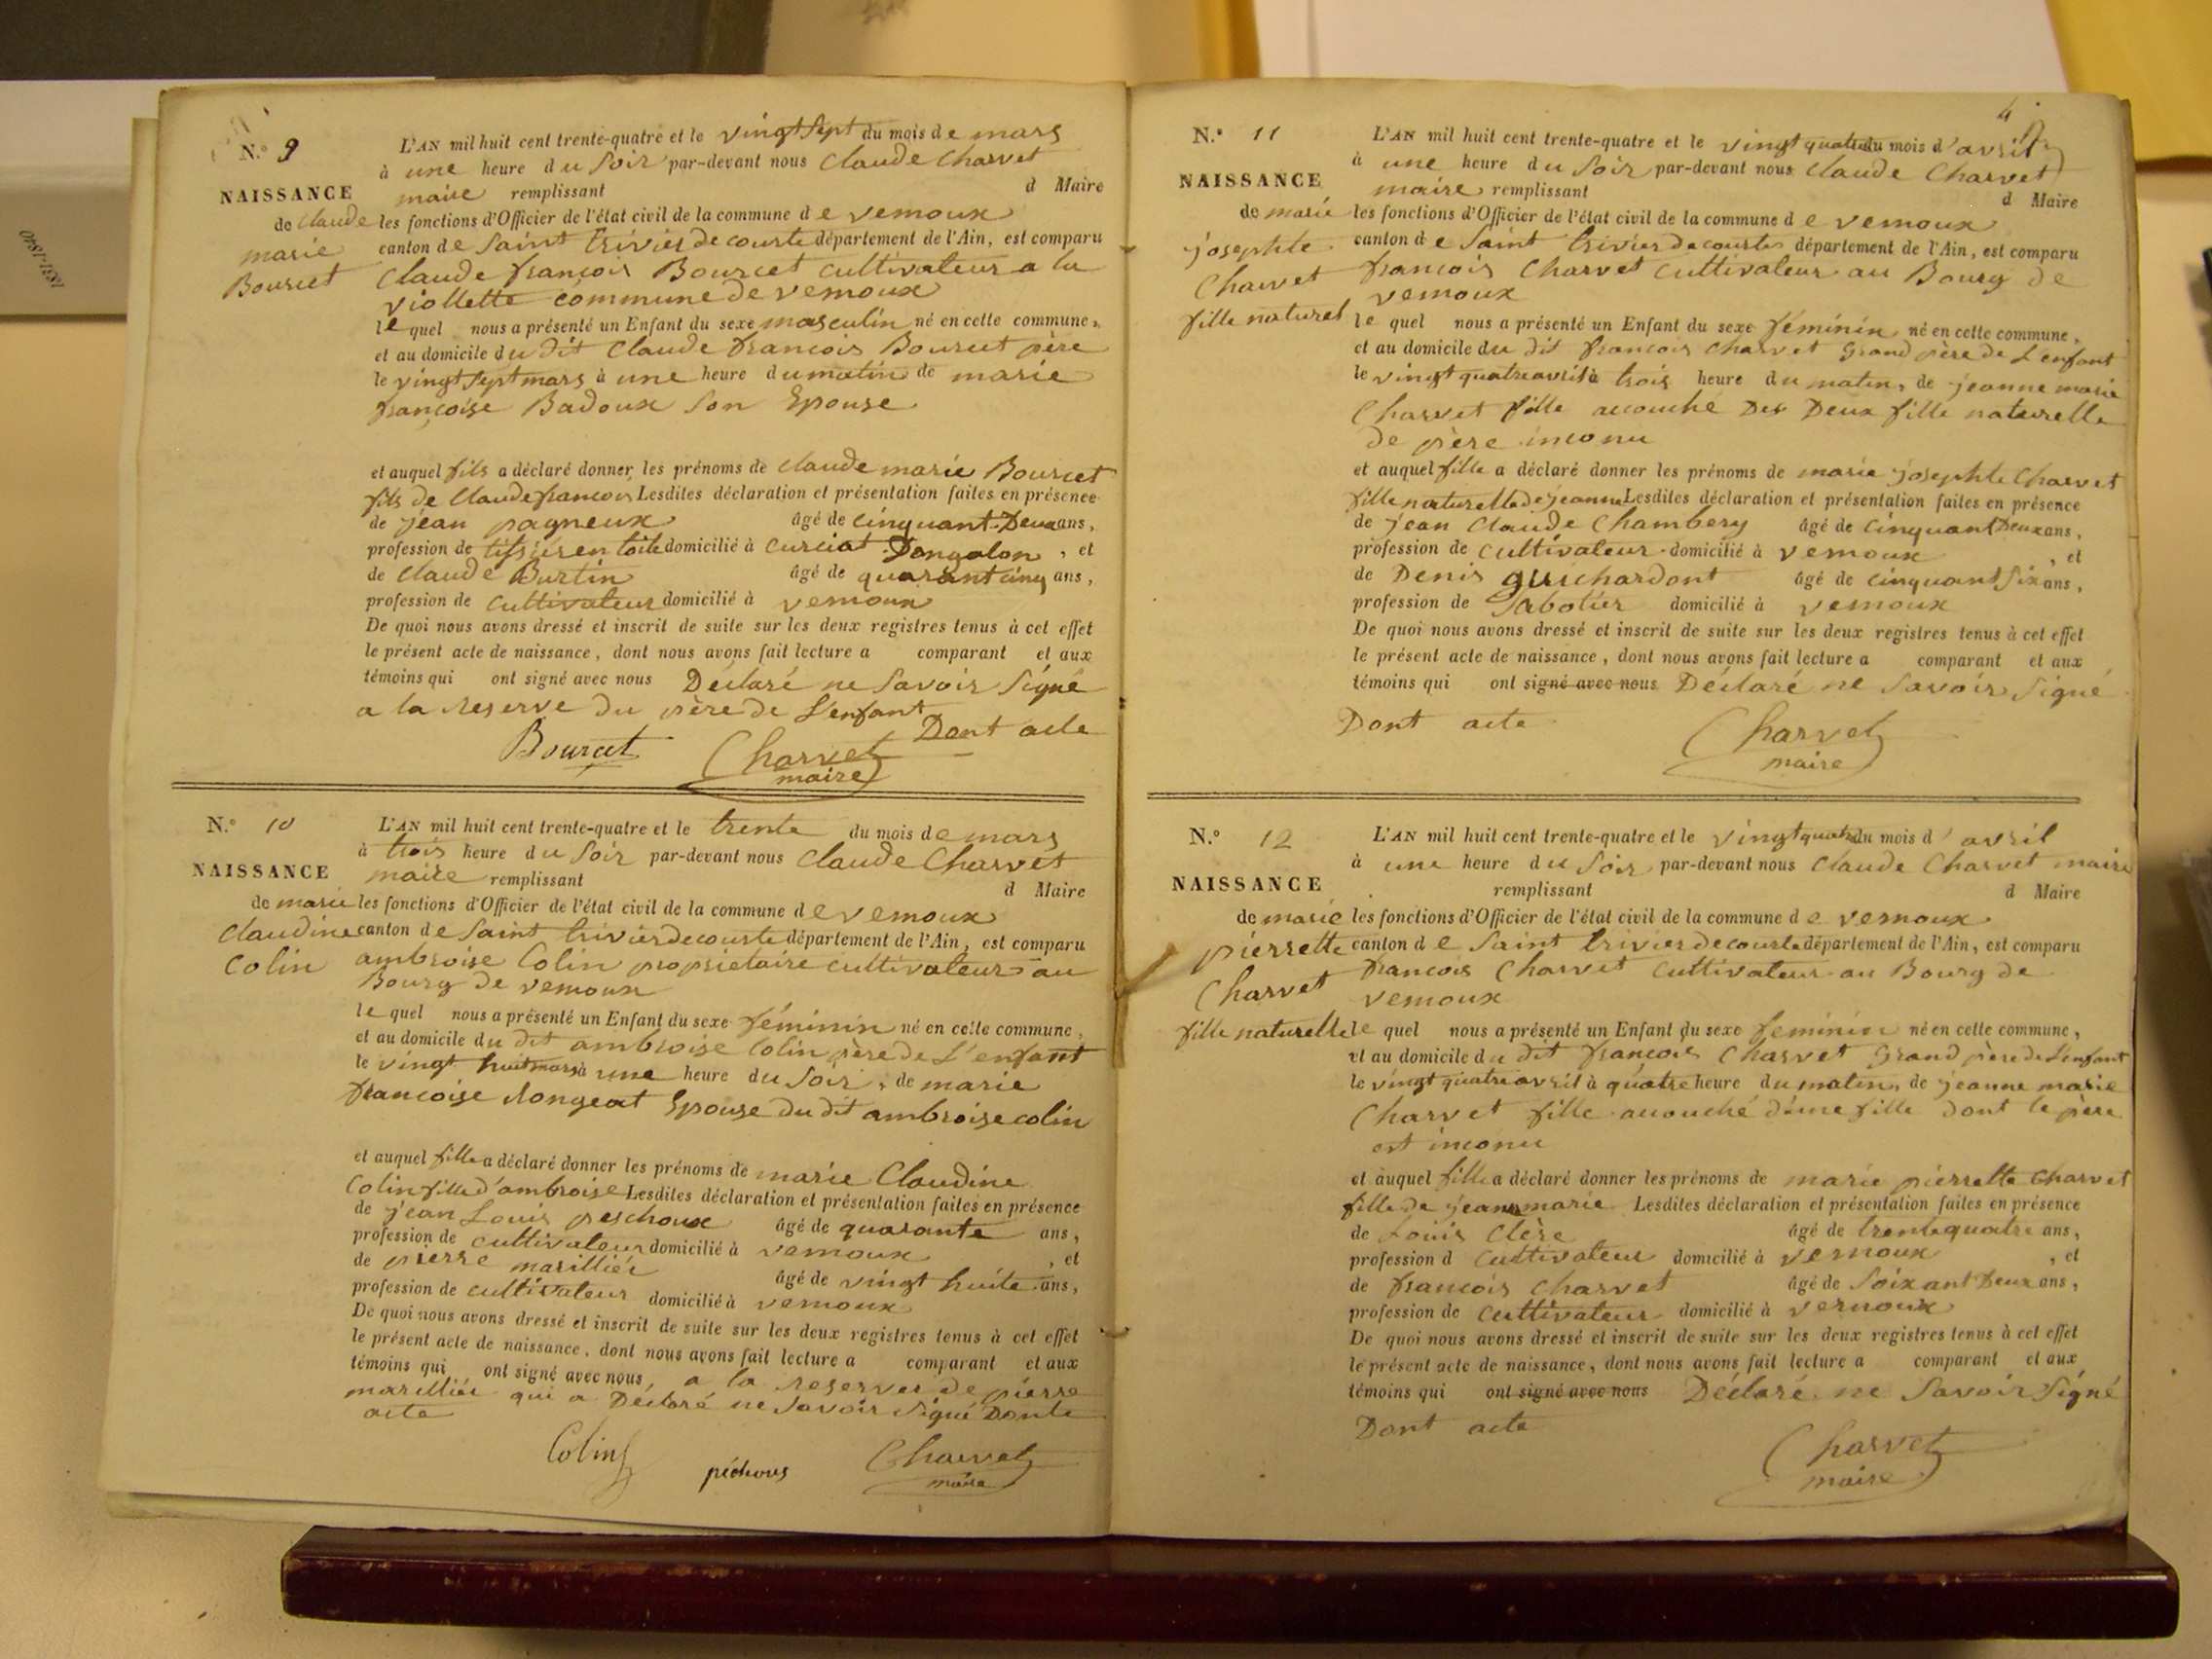 1831-1840
N.° 9
L'AN mil huit cent trente-quatre et le vingt sept du mois de mars
à une heure du soir par-devant nous Claude Charvet
NAISSANCE
maire remplissant d Maire
de Claude
les fonctions d'Officier de l'état civil de la commune de vernoux
marie
canton de saint trivier de courte département de l'Ain, est comparu
Bourcet
Claude françois Bourcet cultivateur a la
viollette commune de vernoux
lequel nous a présenté un Enfant du sexe masculin né en cette commune,
et au domicile du dit Claude francois Bourcet père
le vingt sept mars à une heure du matin de marie
françoise Badoux son Epouse
et auquel fils a déclaré donner les prénoms de claude marie Bourcet
fils de Claude francois Lesdites déclaration et présentation faites en présence
de jean pagneux âgé de cinquant Deux ans,
profession de tissier en toile domicilié à curciat Dongalon, et
de Claude Burtin âgé de quarant cinq ans,
profession de cultivateur domicilié à vernoux
De quoi nous avons dressé et inscrit de suite sur les deux registres tenus à cet effet
le présent acte de naissance, dont nous avons fait lecture a comparant et aux
témoins qui ont signé avec nous Déclaré ne savoir signé
a la reserve du père de L'enfant
Dont acte
Bourcet Charvet
maire
N.° 10
L'AN mil huit cent trente-quatre et le trente du mois de mars
à trois heure du soir par-devant nous Claude Charvet
NAISSANCE
maire remplissant d Maire
de marie
les fonctions d'Officier de l'état civil de la commune de vernoux
Claudine
canton de saint trivier de courte département de l'Ain, est comparu
Colin
ambroise Colin proprietaire cultivateur au
Bourg de vernoux
lequel nous a présenté un Enfant du sexe féminin né en cette commune,
et au domicile du dit ambroise Colin père de L'enfant
le vingt huit mars à une heure du soir, de marie
francoise Rongeat Epouse du dit ambroise colin
et auquel fille a déclaré donner les prénoms de marie Claudine
Colin fille d'ambroise Lesdites déclaration et présentation faites en présence
de jean Louis peschoux âgé de quarante ans,
profession de cultivateur domicilié à vernoux, et
de pierre marillier âgé de vingt huite ans,
profession de cultivateur domicilié à vernoux
De quoi nous avons dressé et inscrit de suite sur les deux registres tenus à cet effet
le présent acte de naissance, dont nous avons fait lecture a comparant et aux
témoins qui ont signé avec nous, a la reserver de pierre
marillier qui a Déclaré ne savoir signé Donte
acte
Colin péchoux Charvet
maire
4
N.° 11
L'AN mil huit cent trente-quatre et le vingt quatre du mois d'avril
à une heure du soir par-devant nous Claude Charvet
NAISSANCE
maire remplissant d Maire
de marie
les fonctions d'Officier de l'état civil de la commune de vernoux
josephte
canton de saint trivier de courtes département de l'Ain, est comparu
Charvet
francois Charvet cultivateur au Bourg de
vernoux
fille naturel
lequel nous a présenté un Enfant du sexe féminin né en cette commune,
et au domicile du dit francois charvet Grand père de L'enfant
le vingt quatre avril à trois heure du matin, de jeanne marie
Charvet fille accouché Des Deux fille naturelle
de père inconu
et auquel fille a déclaré donner les prénoms de marie josephte Charvet
fille naturelle de jeanne Lesdites déclaration et présentation faites en présence
de jean Claude Chambery âgé de cinquant Deux ans,
profession de cultivateur domicilié à vernoux, et
de Denis guichardont âgé de cinquant six ans,
profession de sabotier domicilié à vernoux
De quoi nous avons dressé et inscrit de suite sur les deux registres tenus à cet effet
le présent acte de naissance, dont nous avons fait lecture a comparant et aux
témoins qui ont signé avec nous Déclaré ne savoir signé
Dont acte
Charvet
maire
N.° 12
L'AN mil huit cent trente-quatre et le vingt quatre du mois d'avril
à une heure du soir par-devant nous Claude Charvet maire
NAISSANCE
remplissant d Maire
de marie
les fonctions d'Officier de l'état civil de la commune de vernoux
pierrette
canton de saint trivier de courte département de l'Ain, est comparu
Charvet
francois Charvet cultivateur au Bourg de
vernoux
fille naturelle
lequel nous a présenté un Enfant du sexe feminin né en cette commune,
et au domicile du dit francois Charvet Grand père de L'enfant
le vingt quatre avril à quatre heure du matin, de jeanne marie
Charvet fille accouché d'une fille dont le père
est inconu
et auquel fille a déclaré donner les prénoms de marie pierrette Charvet
fille de jeanne marie Lesdites déclaration et présentation faites en présence
de Louis Clère âgé de trente quatre ans,
profession d cultivateur domicilié à vernoux, et
de francois charvet âgé de soixant Deux ans,
profession de cultivateur domicilié à vernoux
De quoi nous avons dressé et inscrit de suite sur les deux registres tenus à cet effet
le présent acte de naissance, dont nous avons fait lecture a comparant et aux
témoins qui ont signé avec nous Déclaré ne savoir signé
Dont acte
Charvet
maire